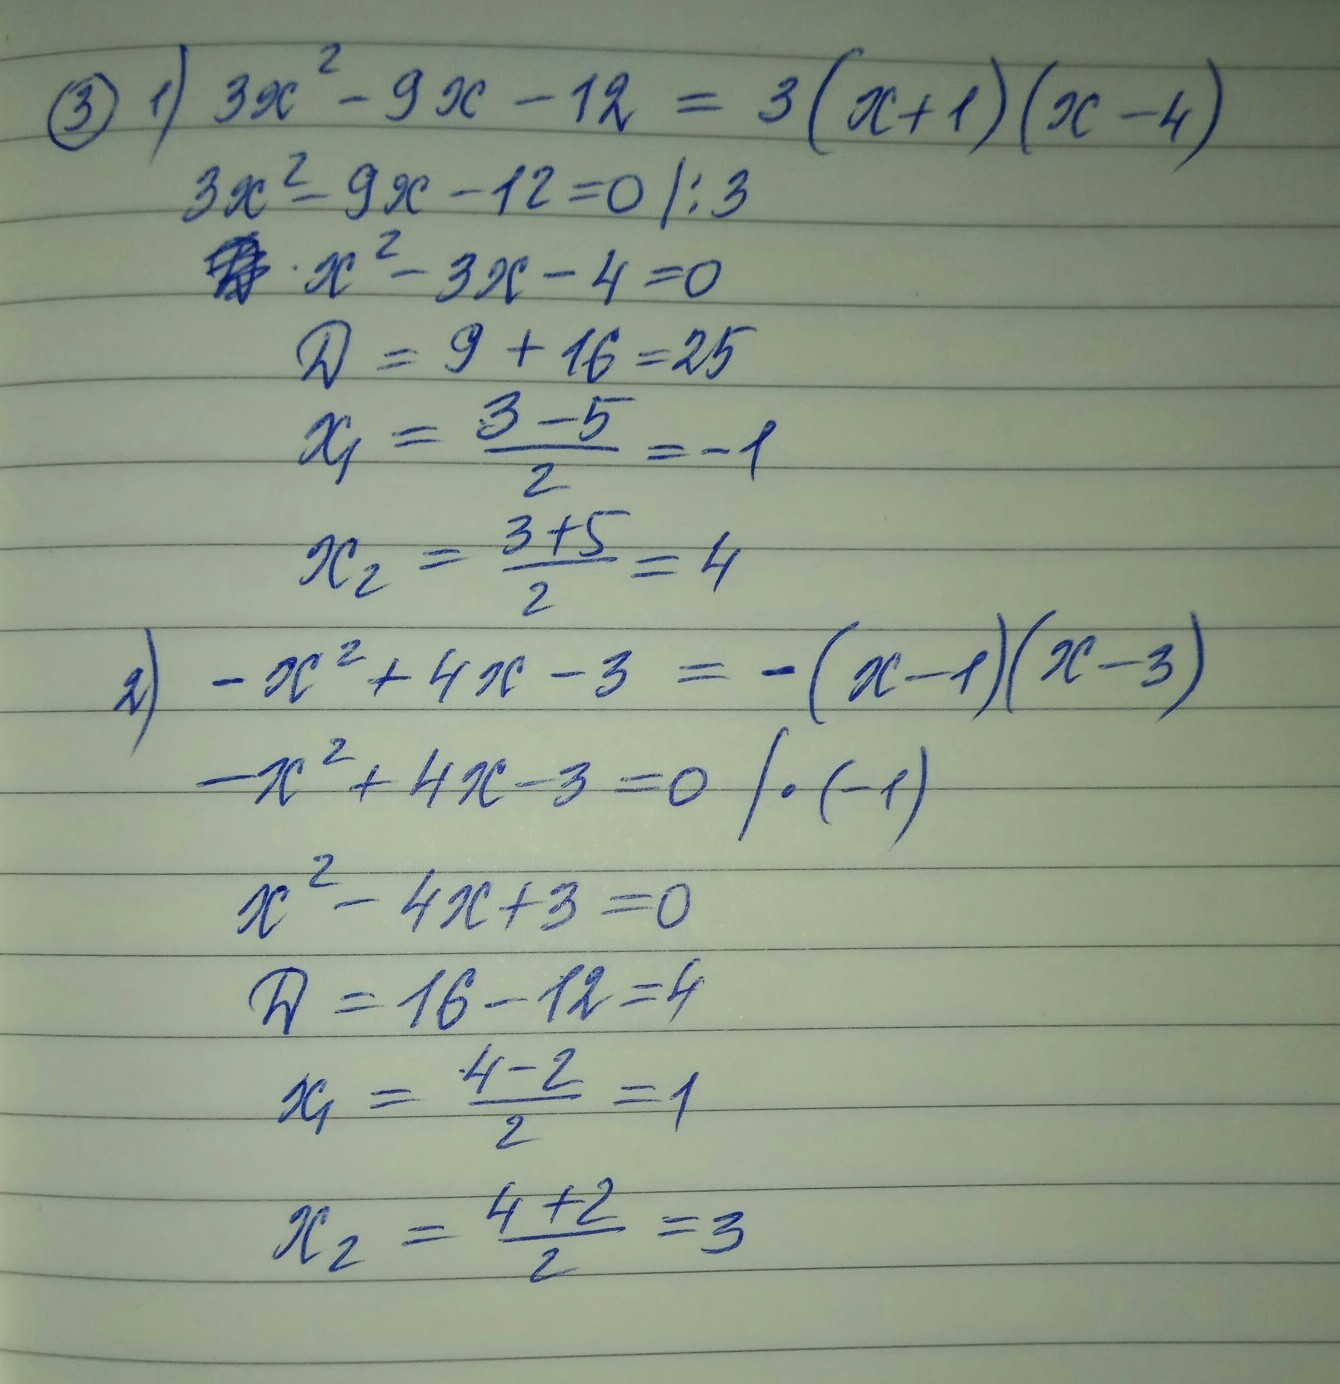 ③ 1) 3x² - 9x - 12 = 3(x+1)(x-4)
3x² - 9x - 12 = 0 |:3
x² - 3x - 4 = 0
D = 9 + 16 = 25
x₁ = (3-5)/2 = -1
x₂ = (3+5)/2 = 4
2) -x² + 4x - 3 = -(x-1)(x-3)
-x² + 4x - 3 = 0 |·(-1)
x² - 4x + 3 = 0
D = 16 - 12 = 4
x₁ = (4-2)/2 = 1
x₂ = (4+2)/2 = 3